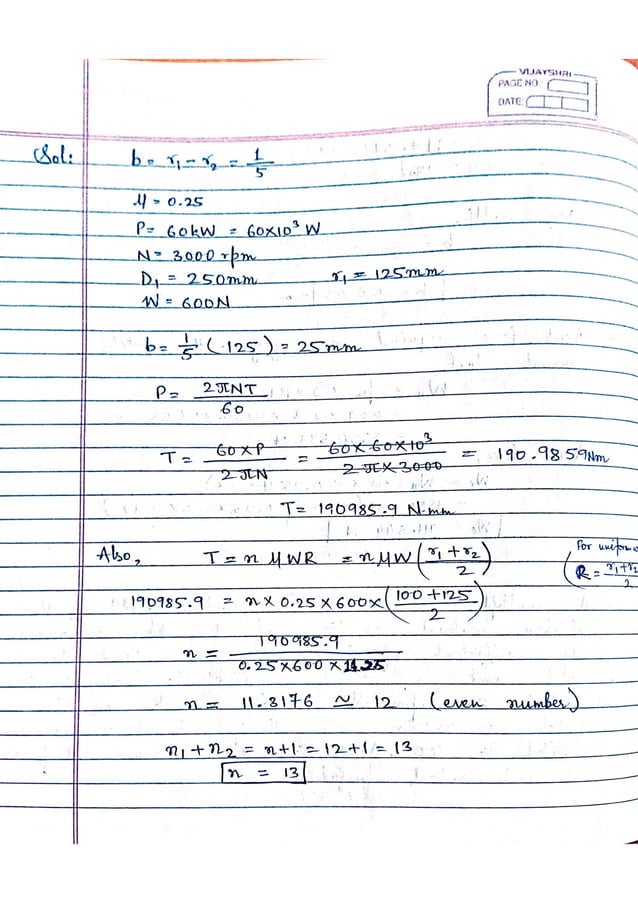 VIJAYSHRI
PAGE NO.
DATE:
Sol: b = r₁ - r₂ = 1/5
μ = 0.25
P = 60kW = 60×10³ W
N = 3000 rpm
D₁ = 250mm r₁ = 125mm
W = 600N
b = 1/5 (125) = 25mm
P = 2πNT/60
T = 60×P/2πN = 60×60×10³/2π×3000 = 190.9859Nm
T = 190985.9 N-mm
Also, T = n μWR = nμW((r₁+r₂)/2) For uniform
(R = (r₁+r₂)/2
190985.9 = n×0.25×600×((100+125)/2)
n = 190985.9/0.25×600×
n = 11.3176 ≃ 12 (even number)
n₁+n₂ = n+1 = 12+1 = 13
n = 13